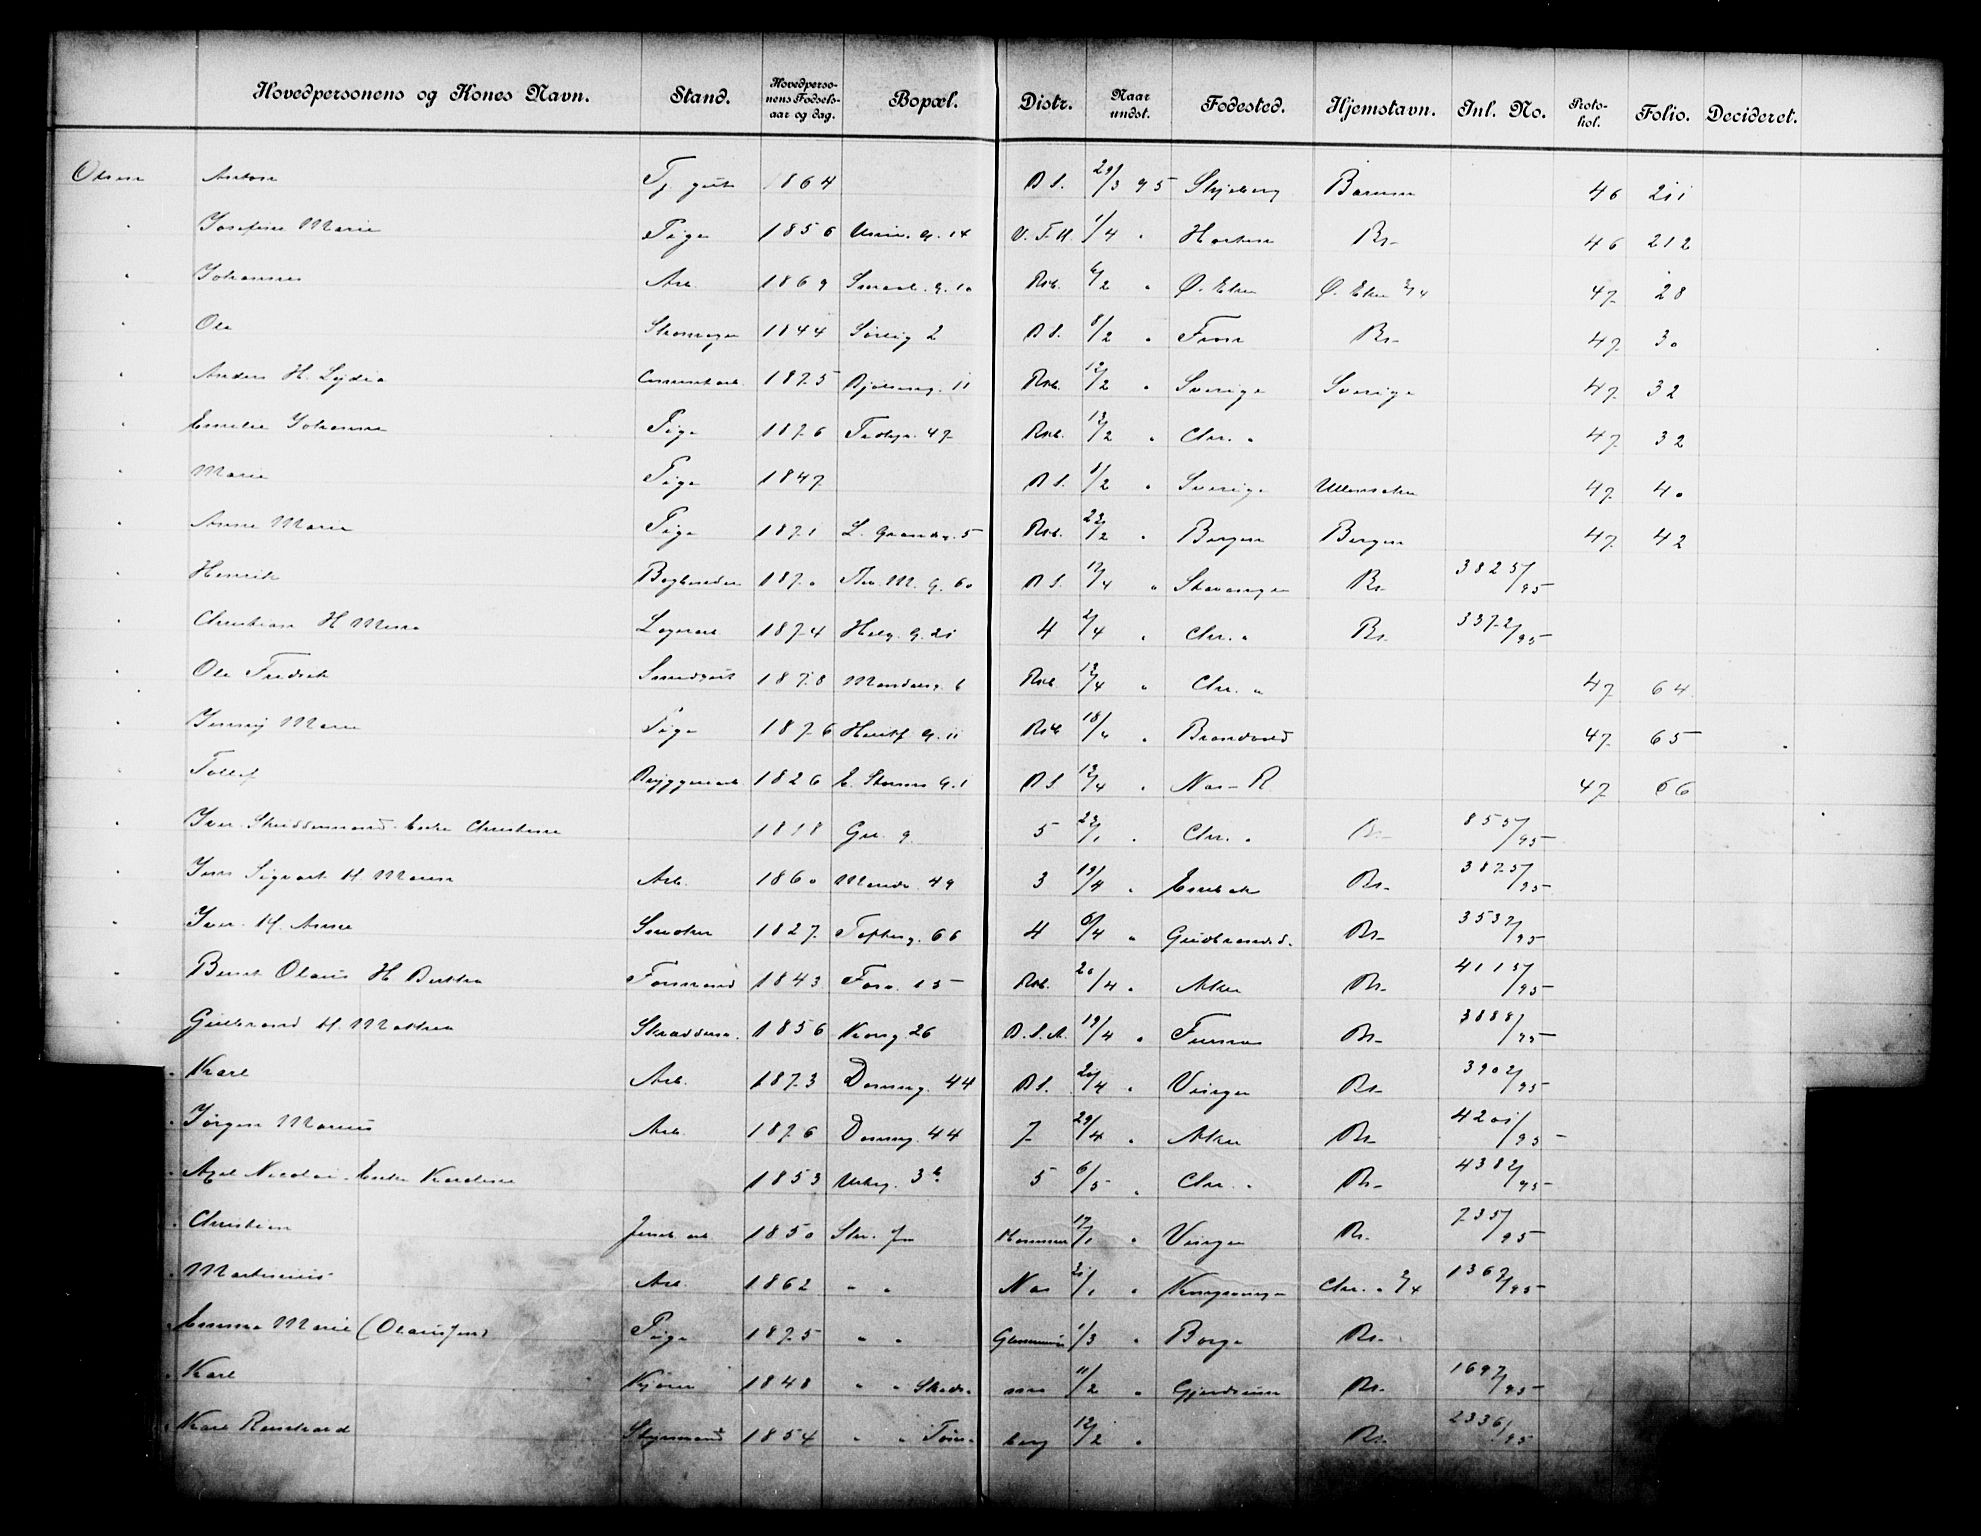 Hovedpersonens og Kones Navn. Stand. Hovedperso-nens Fødsels-aar og dag. Bopæl. Distr. Naar undst. Fødested. Hjemstavn. Inl. No. Proto-kol. Folio. Decideret.
Olsen Anton Tj. gut 1864 B S. 29/3 95 Skjeberg Bærum 46 211
" Josefine Marie Pige 1856 G. 14 V. F. H. 1/4 " Horten Br- 46 212
" Johannes Arb. 1869 Smaal. g. 10 Rub. 6/2 " Ø. Eker Ø. Eker 2/4 47 28
" Ole 1844 Sørlig 2 B S. 8/2 " Br- 47 30
" Anders H. Lydia Cementarb. 1875 11 Rub. 12/2 " Sverige Sverige 47 32
" Emilie Johanne Pige 1876 47 Rub. 13/2 " Chr. " 47 32
" Marie Pige 1847 B S. 8/2 " Sverige Ullensaker 47 40
" Anna Marie Pige 1871 L. Grændsg. 5 Rub. 23/2 " Bergen Bergen 47 42
" Henrik Bogbinder 1870 Thv. M. g. 60 B S. 17/4 " Stavanger Br- 3825/95
" Christian H Mina Lagerarb 1874 Helg. g. 21 4 2/4 " Chr. " Br- 3372/95
" Ole Fredrik Smedgut 1878 Mandals. 6 Rub. 13/4 " Chr. " 47 64
" Jenny Marie Pige 1876 g. 11 Rub 18/4 " Brandvold 47 65
" Tollef Bryggerarb 1826 E. Storms g. 1 B S 13/4 " Nes - R 47 66
" Iver Enke Christine 1818 Grl. g. 5 23/1 " Chr. " Br- 855/95
" Jens Sigvart H. Maren Arb. 1860 Maridv. 49 3 19/4 " Enebak Br- 3875/95
" Iver. H. Anne Snedker 1827 Toftesg. 66 4 6/4 " Gudbrandsd. Br- 3537/95
" Bernt Olaus H Berthe Formand 1843 Foss. 15 Rub. 20/4 " Aker Br- 4115/95
" Gulbrand H. Mathea Skræderm. 1856 Kong. 26 B. S. A. 19/4 " Furnes Br- 3888/95
" Karl Arb. 1873 Dronng. 44 B S. 20/4 " Vinger Br- 3902/95
" Jørgen Marius Arb. 1876 Dronng. 44 7 29/4 " Aker Br- 4201/95
" Axel Nicolai. Enke Karoline 1853 Urteg. 3b 5 6/5 " Chr. " Br- 4382/95
" Christian Jernb arb. 1850 Str. fn Hammer 17/1 " Vinger Br. 735/95
" Martinius Arb. 1862 " " Nes 21/1 " Kongsvinger Chr. " 2/4 1367/95
" Emma Marie (Olausen) Pige 1875 " " Glemminge 1/3 " Borge Br-
" Karl Kjører 1848 " " Skeds- mo 11/2 " Gjerdrum Br- 1697/95
" Karl Reinhard Styrmand 1854 " " Tøns- berg 12/2 " Br. 2336/95